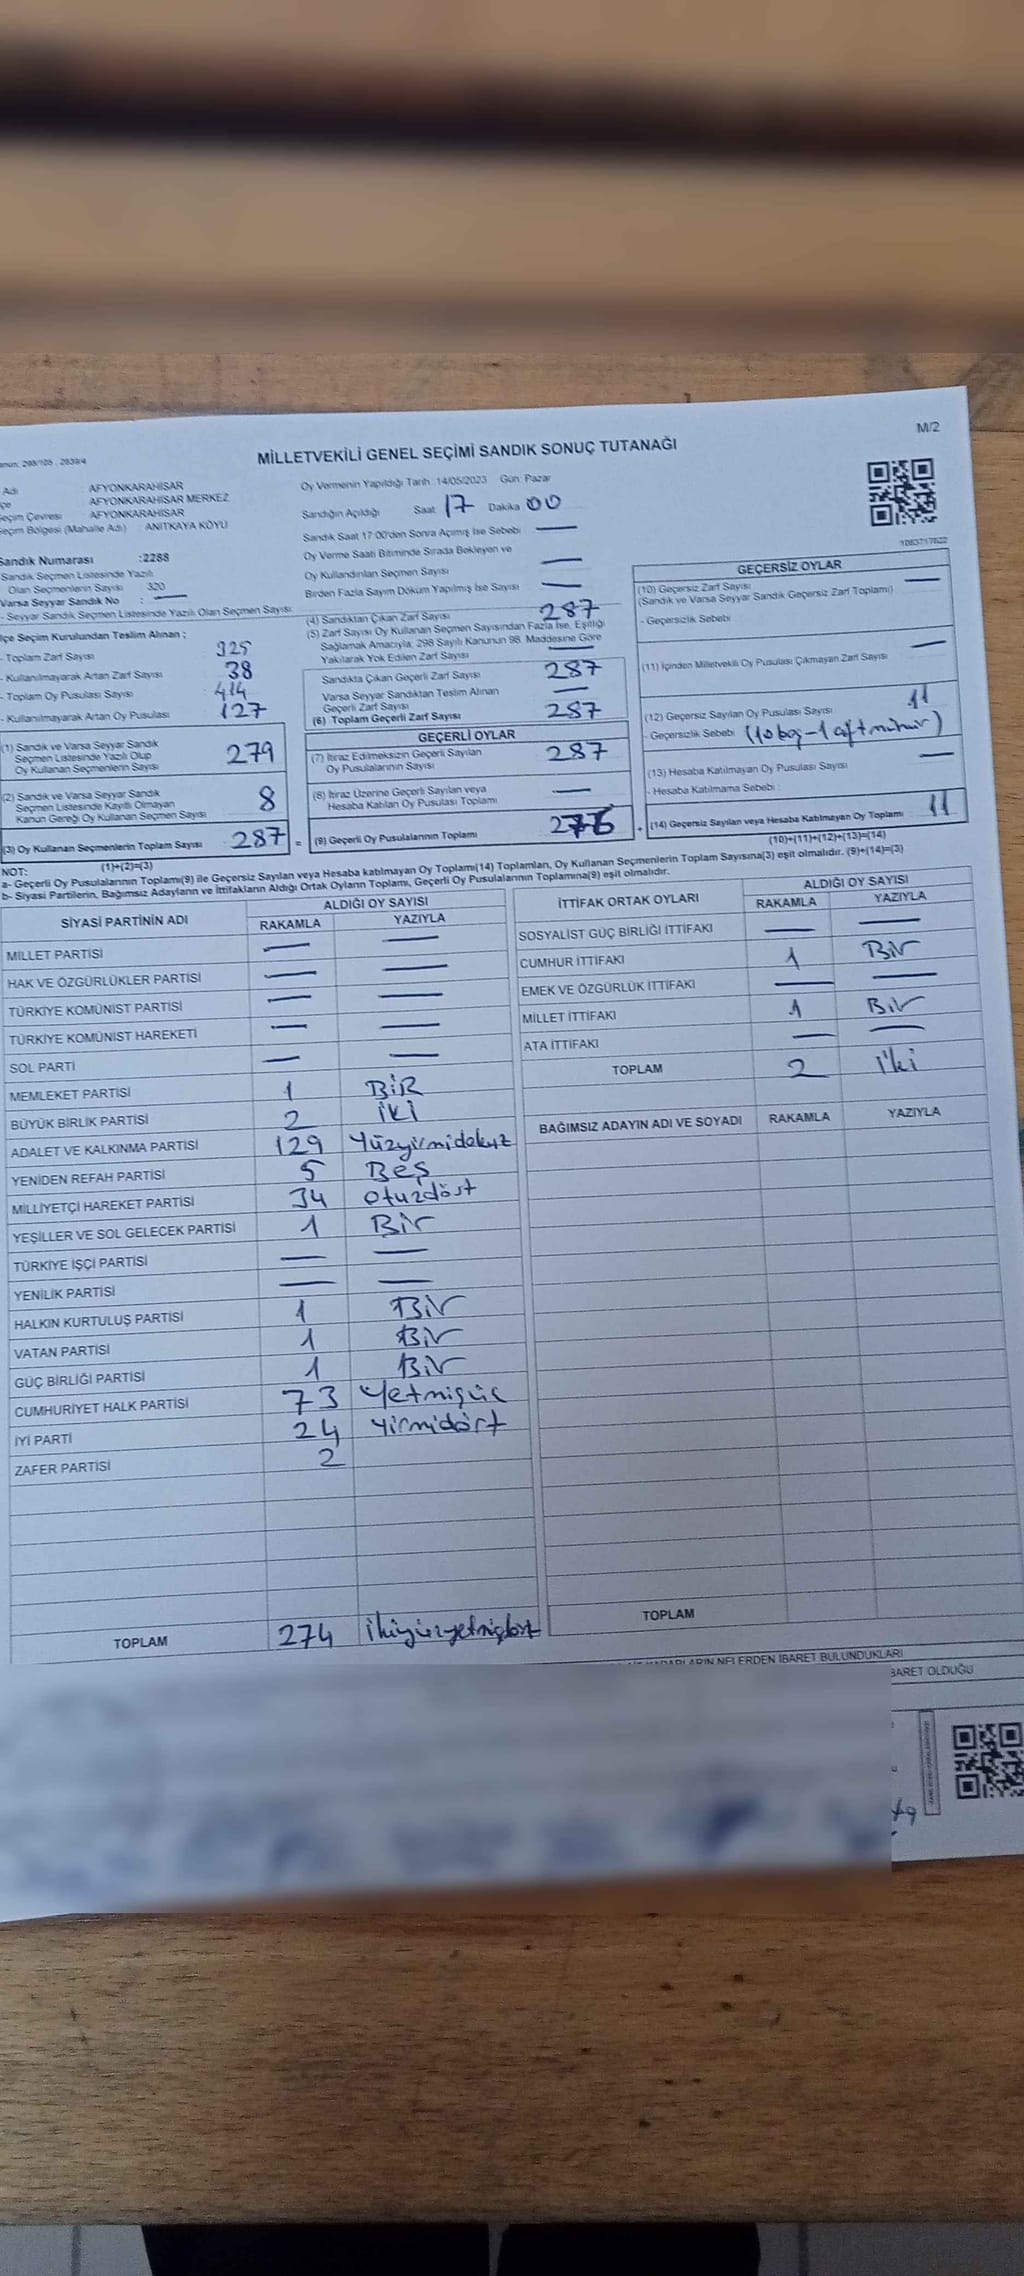 M/2
MİLLETVEKİLİ GENEL SEÇİMİ SANDIK SONUÇ TUTANAĞI
Adı AFYONKARAHİSAR
AFYONKARAHİSAR MERKEZ
Seçim Çevresi AFYONKARAHİSAR
Seçim Bölgesi (Mahalle Adı) ANITKAYA KÖYÜ
Sandık Numarası :2288
Sandık Seçmen Listesinde Yazılı
Olan Seçmenlerin Sayısı 320
Varsa Seyyar Sandık No : —
- Seyyar Sandık Seçmen Listesinde Yazılı Olan Seçmen Sayısı:
İlçe Seçim Kurulundan Teslim Alınan ;
- Toplam Zarf Sayısı 325
- Kullanılmayarak Artan Zarf Sayısı 38
- Toplam Oy Pusulası Sayısı : 414
- Kullanılmayarak Artan Oy Pusulası : 127
(1) Sandık ve Varsa Seyyar Sandık
Seçmen Listesinde Yazılı Olup
Oy Kullanan Seçmenlerin Sayısı 279
(2) Sandık ve Varsa Seyyar Sandık
Seçmen Listesinde Kayıtlı Olmayan
Kanun Gereği Oy Kullanan Seçmen Sayısı 8
(3) Oy Kullanan Seçmenlerin Toplam Sayısı 287 =
(1)+(2)=(3)
Oy Vermenin Yapıldığı Tarih :14/05/2023 Gün: Pazar
Sandığın Açıldığı Saat 17 Dakika 00
Sandık Saat 17:00'den Sonra Açımış İse Sebebi —
Oy Verme Saati Bitiminde Sırada Bekleyen ve
Oy Kullandırılan Seçmen Sayısı —
Birden Fazla Sayım Döküm Yapılmış İse Sayısı —
(4) Sandıktan Çıkan Zarf Sayısı 287
(5) Zarf Sayısı Oy Kullanan Seçmen Sayısından Fazla İse, Eşitliği
Sağlamak Amacıyla, 298 Sayılı Kanunun 98. Maddesine Göre
Yakılarak Yok Edilen Zarf Sayısı —
Sandıkta Çıkan Geçerli Zarf Sayısı 287
Varsa Seyyar Sandıktan Teslim Alınan
Geçerli Zarf Sayısı —
(6) Toplam Geçerli Zarf Sayısı 287
GEÇERLİ OYLAR
(7) İtiraz Edilmeksizin Geçerli Sayılan
Oy Pusulalarının Sayısı 287
(8) İtiraz Üzerine Geçerli Sayılan veya
Hesaba Katılan Oy Pusulası Toplamı —
(9) Geçerli Oy Pusulalarının Toplamı 276 +
GEÇERSİZ OYLAR
(10) Geçersiz Zarf Sayısı —
(Sandık ve Varsa Seyyar Sandık Geçersiz Zarf Toplamı)
- Geçersizlik Sebebi
(11) İçinden Milletvekili Oy Pusulası Çıkmayan Zarf Sayısı —
(12) Geçersiz Sayılan Oy Pusulası Sayısı 11
- Geçersizlik Sebebi (10 boş-1 çift mühür)
(13) Hesaba Katılmayan Oy Pusulası Sayısı —
- Hesaba Katılmama Sebebi :
(14) Geçersiz Sayılan veya Hesaba Katılmayan Oy Toplamı 11
(10)+(11)+(12)+(13)=(14)
NOT:
a- Geçerli Oy Pusulalarının Toplamı(9) ile Geçersiz Sayılan veya Hesaba katılmayan Oy Toplamı(14) Toplamları, Oy Kullanan Seçmenlerin Toplam Sayısına(3) eşit olmalıdır. (9)+(14)=(3)
b- Siyasi Partilerin, Bağımsız Adayların ve İttifakların Aldığı Ortak Oyların Toplamı, Geçerli Oy Pusulalarının Toplamına(9) eşit olmalıdır.
SİYASİ PARTİNİN ADI ALDIĞI OY SAYISI
RAKAMLA YAZIYLA
MİLLET PARTİSİ — —
HAK VE ÖZGÜRLÜKLER PARTİSİ — —
TÜRKİYE KOMÜNİST PARTİSİ — —
TÜRKİYE KOMÜNİST HAREKETİ — —
SOL PARTİ — —
MEMLEKET PARTİSİ 1 BİR
BÜYÜK BİRLİK PARTİSİ 2 İKİ
ADALET VE KALKINMA PARTİSİ 129 Yüzyirmidokuz
YENİDEN REFAH PARTİSİ 5 Beş
MİLLİYETÇİ HAREKET PARTİSİ 34 otuzdört
YEŞİLLER VE SOL GELECEK PARTİSİ 1 Bir
TÜRKİYE İŞÇİ PARTİSİ — —
YENİLİK PARTİSİ — —
HALKIN KURTULUŞ PARTİSİ 1 Bir
VATAN PARTİSİ 1 Bir
GÜÇ BİRLİĞİ PARTİSİ 1 Bir
CUMHURİYET HALK PARTİSİ 73 Yetmişüç
İYİ PARTİ 24 Yirmidört
ZAFER PARTİSİ 2
TOPLAM 274 İkiyüzyetmişdört
İTTİFAK ORTAK OYLARI ALDIĞI OY SAYISI
RAKAMLA YAZIYLA
SOSYALİST GÜÇ BİRLİĞİ İTTİFAKI — —
CUMHUR İTTİFAKI 1 Bir
EMEK VE ÖZGÜRLÜK İTTİFAKI — —
MİLLET İTTİFAKI 1 Bir
ATA İTTİFAKI — —
TOPLAM 2 iki
BAĞIMSIZ ADAYIN ADI VE SOYADI RAKAMLA YAZIYLA
TOPLAM
NELERDEN İBARET BULUNDUKLARI
BARET OLDUĞU